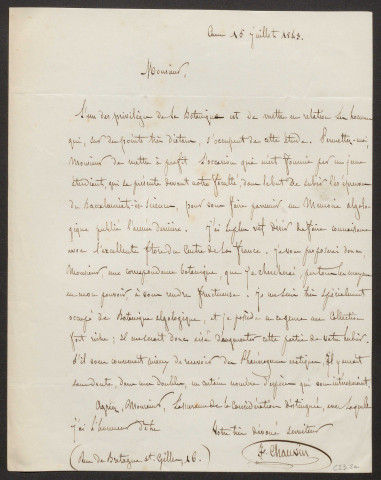 Caen 15 juillet 1843.
Monsieur,
L'un des privilèges de la Botanique est de mettre en relation des hommes
qui, sur des points très distans, s'occupent de cette étude. Permettez-moi,
Monsieur de mettre à profit l'occasion qui m'est fournie par un jeune
étudiant, qui se présente devant notre faculté, dans le but de subir les épreuves
du Baccalauréat-ès-sciences, pour vous faire parvenir un Mémoire algolo-
gique publié l'année dernière. J'ai le plus vif désir de faire connaissance
avec l'excellente flore du Centre de la France. Je vous proposerai donc,
Monsieur, une correspondance botanique, que je chercherai, par tous les moyens
en mon pouvoir, à vous rendre fructueuse. Je me suis très spécialement
occupé de Botanique algologique, et je possède en ce genre une collection
fort riche; il me serait donc aisé d'augmenter cette partie de votre herbier.
S'il vous convenait mieux de recevoir des Phanérogames exotiques, il y aurait
sans doute, dans mes doubles, un certain nombre d'espèces qui vous intéresseraient.
Agréez, Monsieur, l'assurance de la considération distinguée, avec laquelle
j'ai l'honneur d'être
Votre très dévoué serviteur
J. Chauvin
(Rue de Bretagne St Gilles, 16.)